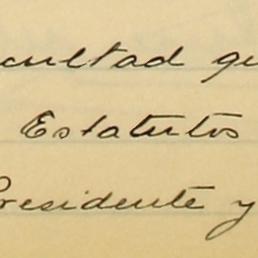 cultad qu
Estatutos
residente y